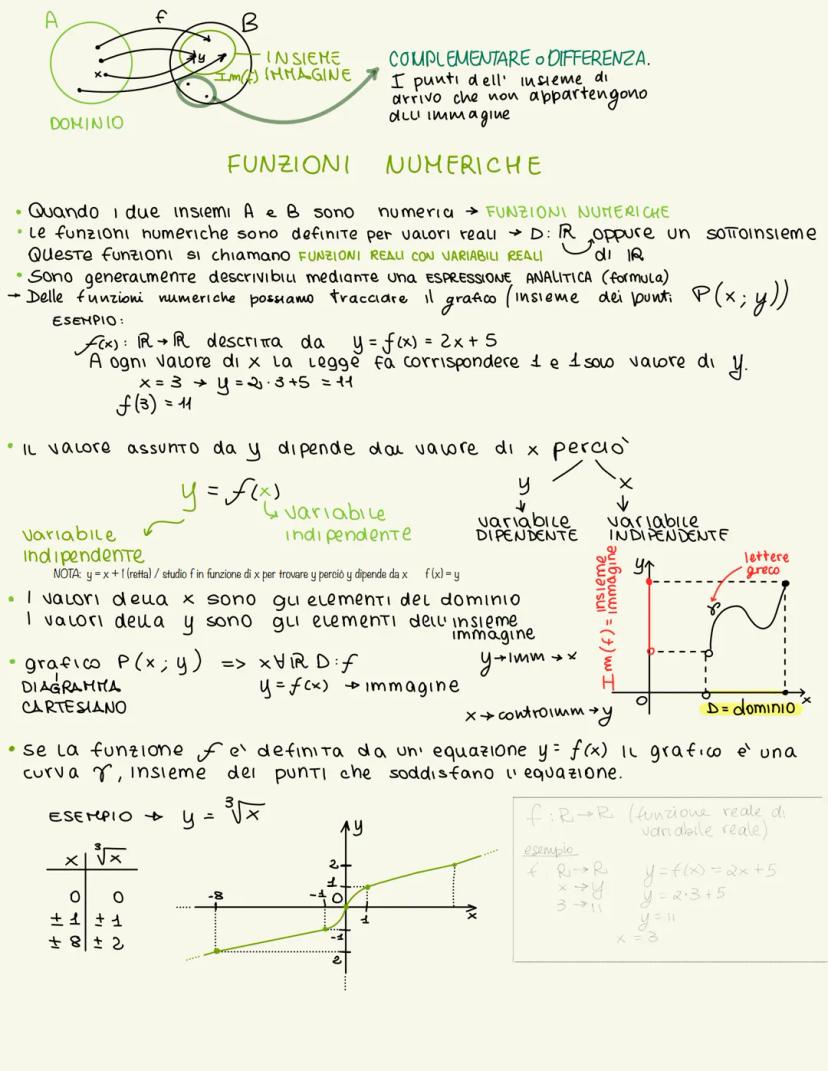 A f B
y
x
INSIEME
Im(f) IMMAGINE
DOMINIO
COMPLEMENTARE o DIFFERENZA.
I punti dell' insieme di
arrivo che non appartengono
all immagine
FUNZIONI NUMERICHE
• Quando i due insiemi A e B sono numerici → FUNZIONI NUMERICHE
• Le funzioni numeriche sono definite per valori reali → D: ℝ oppure un sottoinsieme
di ℝ
Queste funzioni si chiamano FUNZIONI REALI CON VARIABILI REALI
• Sono generalmente descrivibili mediante una ESPRESSIONE ANALITICA (formula)
→ Delle funzioni numeriche possiamo tracciare il grafico (insieme dei punti P(x; y))
ESEMPIO:
f(x): ℝ → ℝ descritta da y = f(x) = 2x + 5
A ogni valore di x la legge fa corrispondere 1 e 1 solo valore di y.
x = 3 → y = 2·3+5 = 11
f(3) = 11
• Il valore assunto da y dipende dal valore di x perciò
y x
variabile DIPENDENTE
variabile INDIPENDENTE
y = f(x)
variabile indipendente
variabile indipendente
NOTA: y = x + 1 (retta) / studio f in funzione di x per trovare y perciò y dipende da x f (x) = y
• I valori della x sono gli elementi del dominio
I valori della y sono gli elementi dell' insieme
immagine
• grafico P(x; y) => x∀ℝ D:f
DIAGRAMMA
CARTESIANO
y = f(x) → immagine
y → imm → x
x → controimm → y
Im(f) = insieme immagine
y
lettere greco
γ
O
x
D = dominio
• Se la funzione f è definita da un' equazione y = f(x) il grafico è una
curva γ, insieme dei punti che soddisfano l'equazione.
ESEMPIO → y = ³√x
x | ³√x
0 | 0
± 1 | ± 1
± 8 | ± 2
y
2
1
-8 -1 0 1 x
-1
2
f: R → R (funzione reale di
variabile reale)
esempio
f: R → R y = f(x) = 2x + 5
x → y y = 2·3+5
3 → 11 y = 11
x = 3